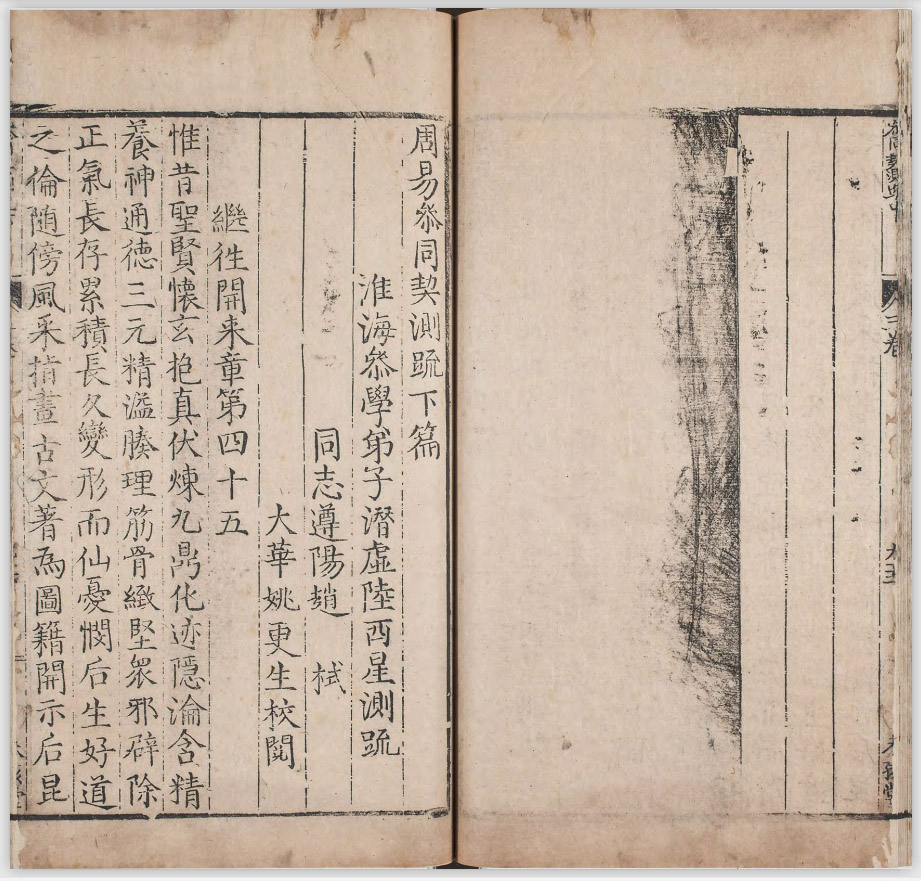 周易叅同契測疏下篇
淮海叅學弟子潛虛陸西星測疏
同志遵陽趙　栻
大華姚更生校閱
繼徃開来章第四十五
惟昔聖賢懷玄抱真伏煉九鼎化迹隱淪含精
養神通德三元精溢腠理筋骨緻堅衆邪辟除
正氣長存累積長久變形而仙憂憫后生好道
之倫随傍風采指畫古文著為圖籍開示后昆